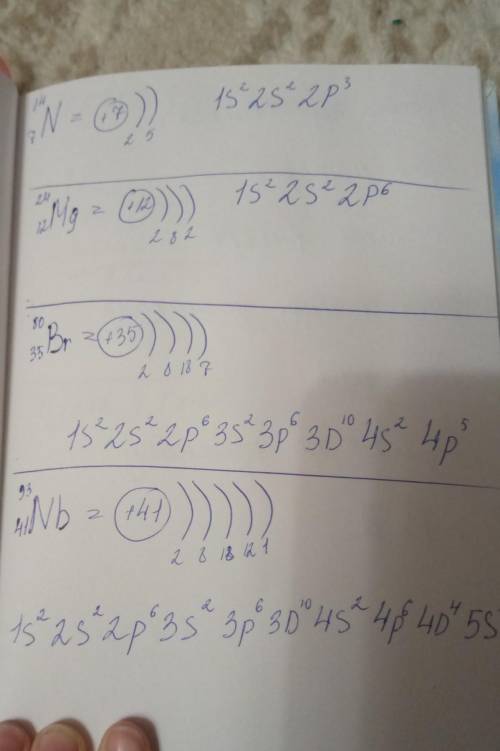 ¹⁴₇N = +7 ) ) 1S² 2S² 2P³
2 5
²⁴₁₂Mg = +12 ) ) ) 1S² 2S² 2P⁶
2 8 2
⁸⁰₃₅Br = +35 ) ) ) )
2 8 18 7
1S² 2S² 2P⁶ 3S² 3P⁶ 3D¹⁰ 4S² 4P⁵
⁹³₄₁Nb = +41 ) ) ) ) )
2 8 18 12 1
1S² 2S² 2P⁶ 3S² 3P⁶ 3D¹⁰ 4S² 4P⁶ 4D⁴ 5S